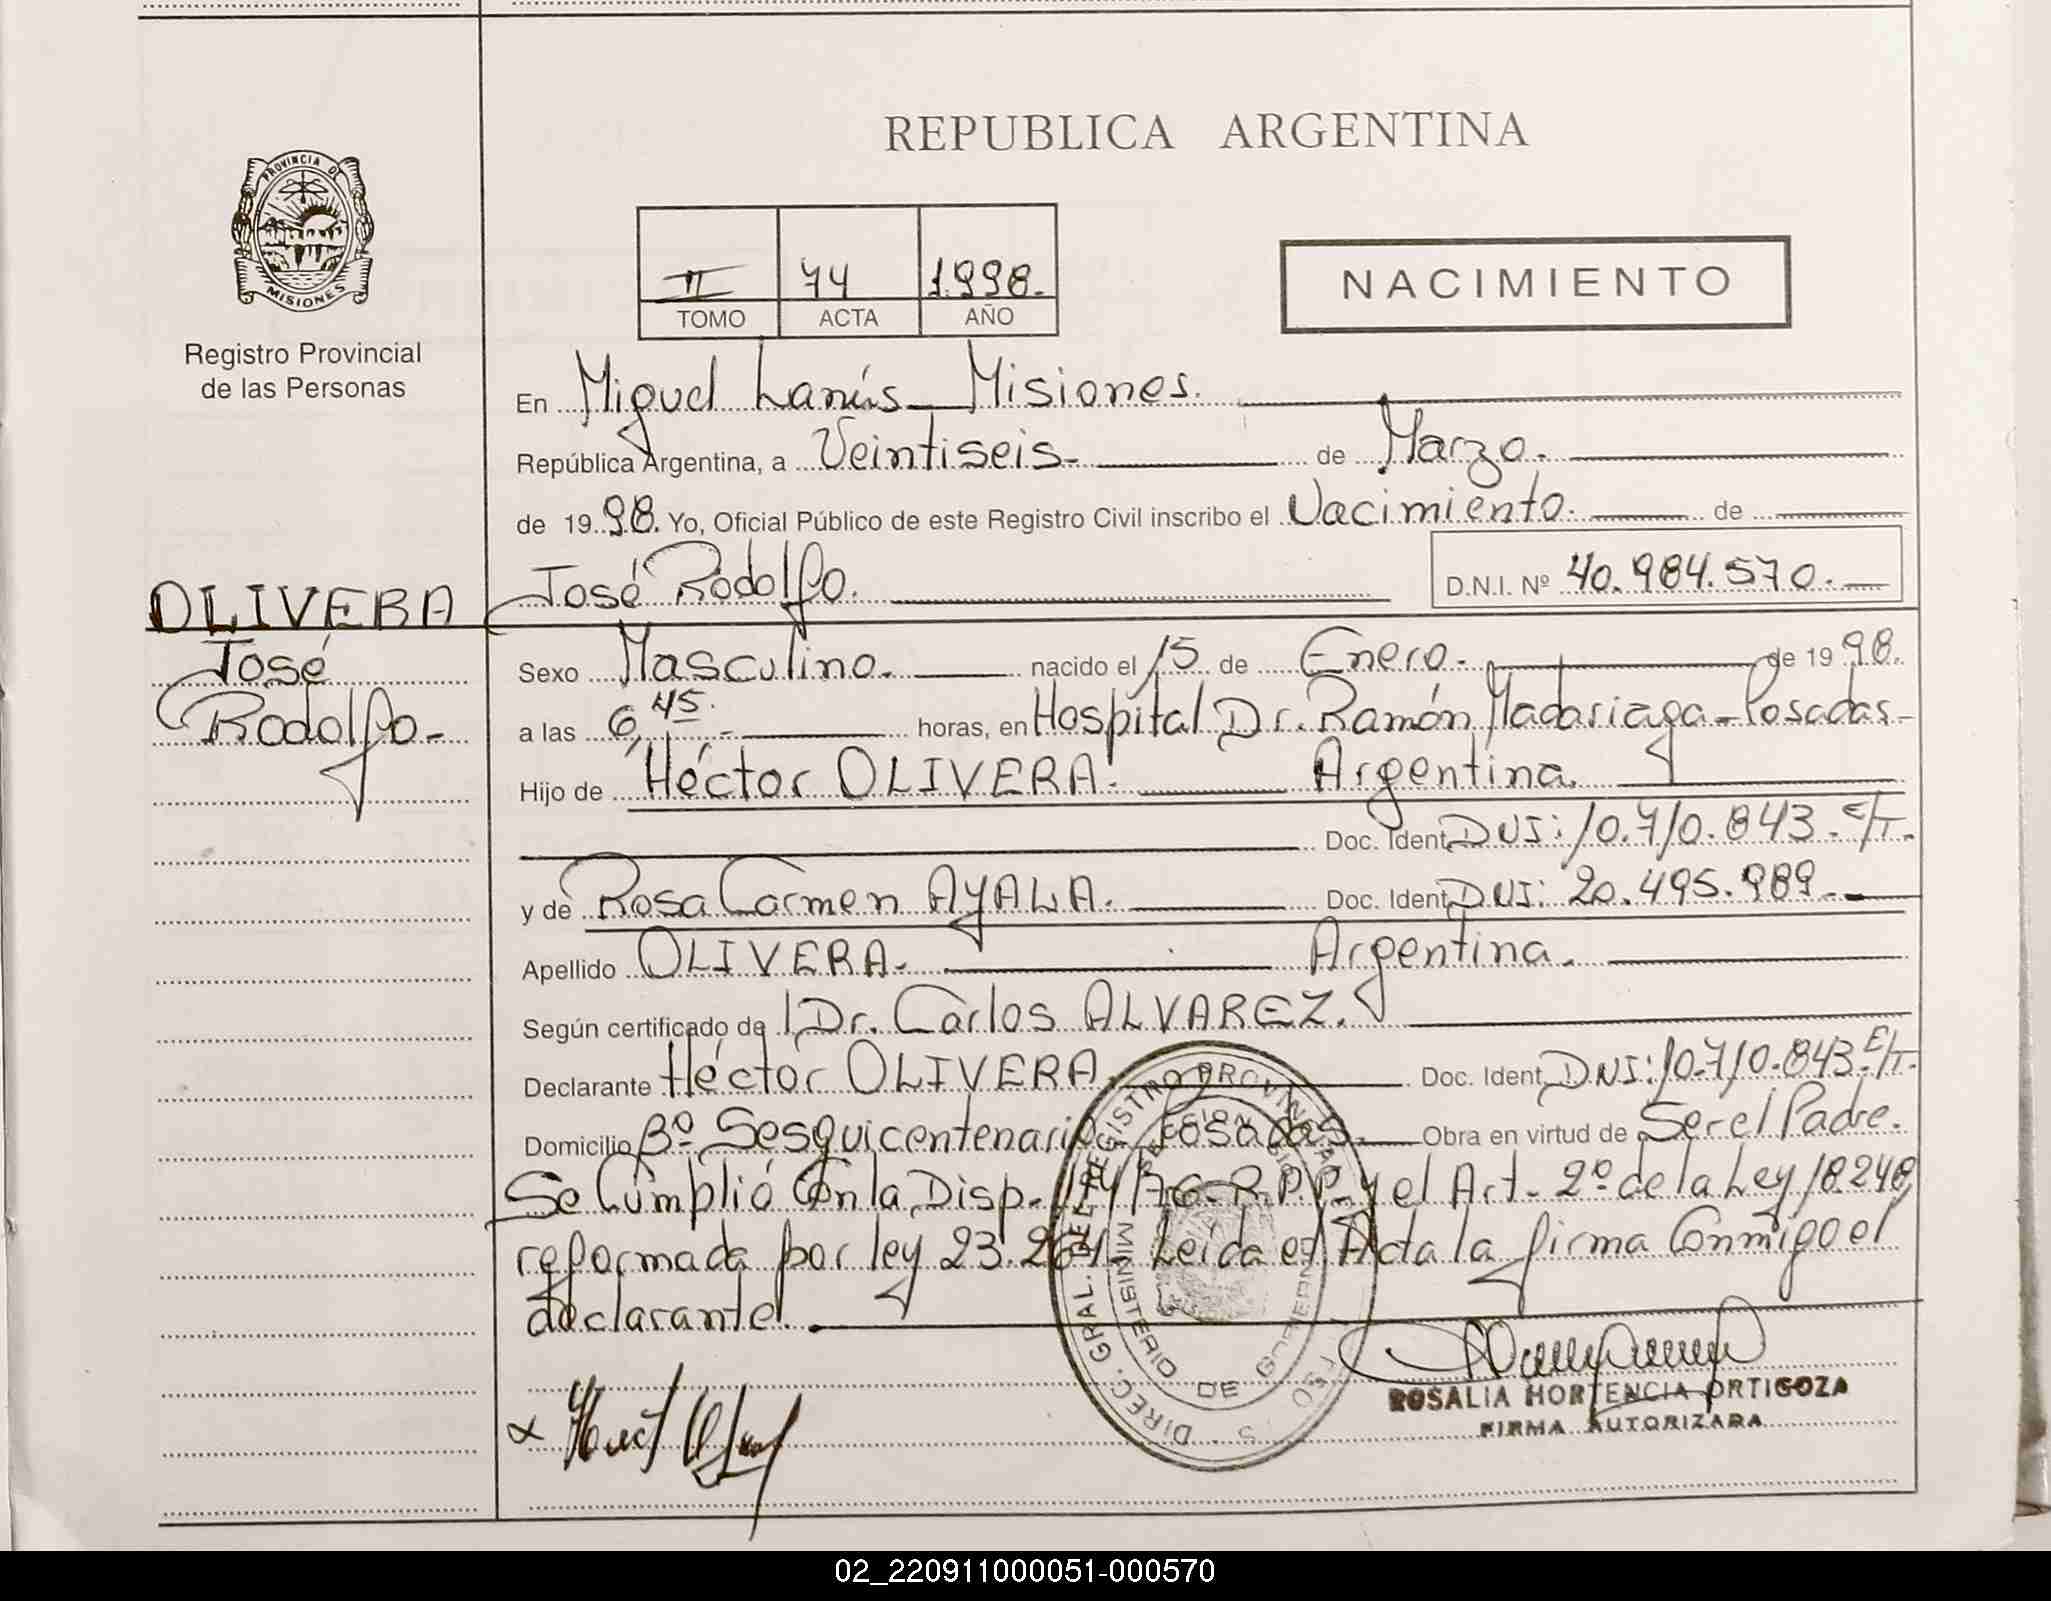 REPUBLICA ARGENTINA
PROVINCIA DE
MISIONES
Registro Provincial
de las Personas
II 74 1.998.
TOMO ACTA AÑO
NACIMIENTO
En Miguel Lanús Misiones.
República Argentina, a Veintiseis- de Marzo.
de 1998. Yo, Oficial Público de este Registro Civil inscribo el Nacimiento. de
José Rodolfo. D.N.I. Nº 40.984.570.
OLIVERA
José
Rodolfo-
Sexo Masculino. nacido el 15 de Enero. de 1998.
a las 6,45.- horas, en Hospital Dr. Ramón Madariaga-Posadas-
Hijo de Héctor OLIVERA. Argentina.
Doc. Ident. DNI: 10.710.843.E/T.
y de Rosa Carmen AYALA. Doc. Ident. DNI: 20.495.989.-
Apellido OLIVERA. Argentina.
Según certificado de Dr. Carlos ALVAREZ.
Declarante Héctor OLIVERA. Doc. Ident. DNI: 10.710.843.E/T.
Domicilio Bº Sesquicentenario Posadas. Obra en virtud de Ser el Padre.
Se Cumplió Con la Disp. R.P.P. y el Art. 2º de la Ley 18.248,
reformada por ley 23.264. Leida el Acta la firma Conmigo el
declarante.
DIREC. GRAL. DEL REGISTRO PROVINCIAL
MINISTERIO DE GOBIERNO
ROSALIA HORTENCIA ORTIGOZA
FIRMA AUTORIZADA
02_220911000051-000570